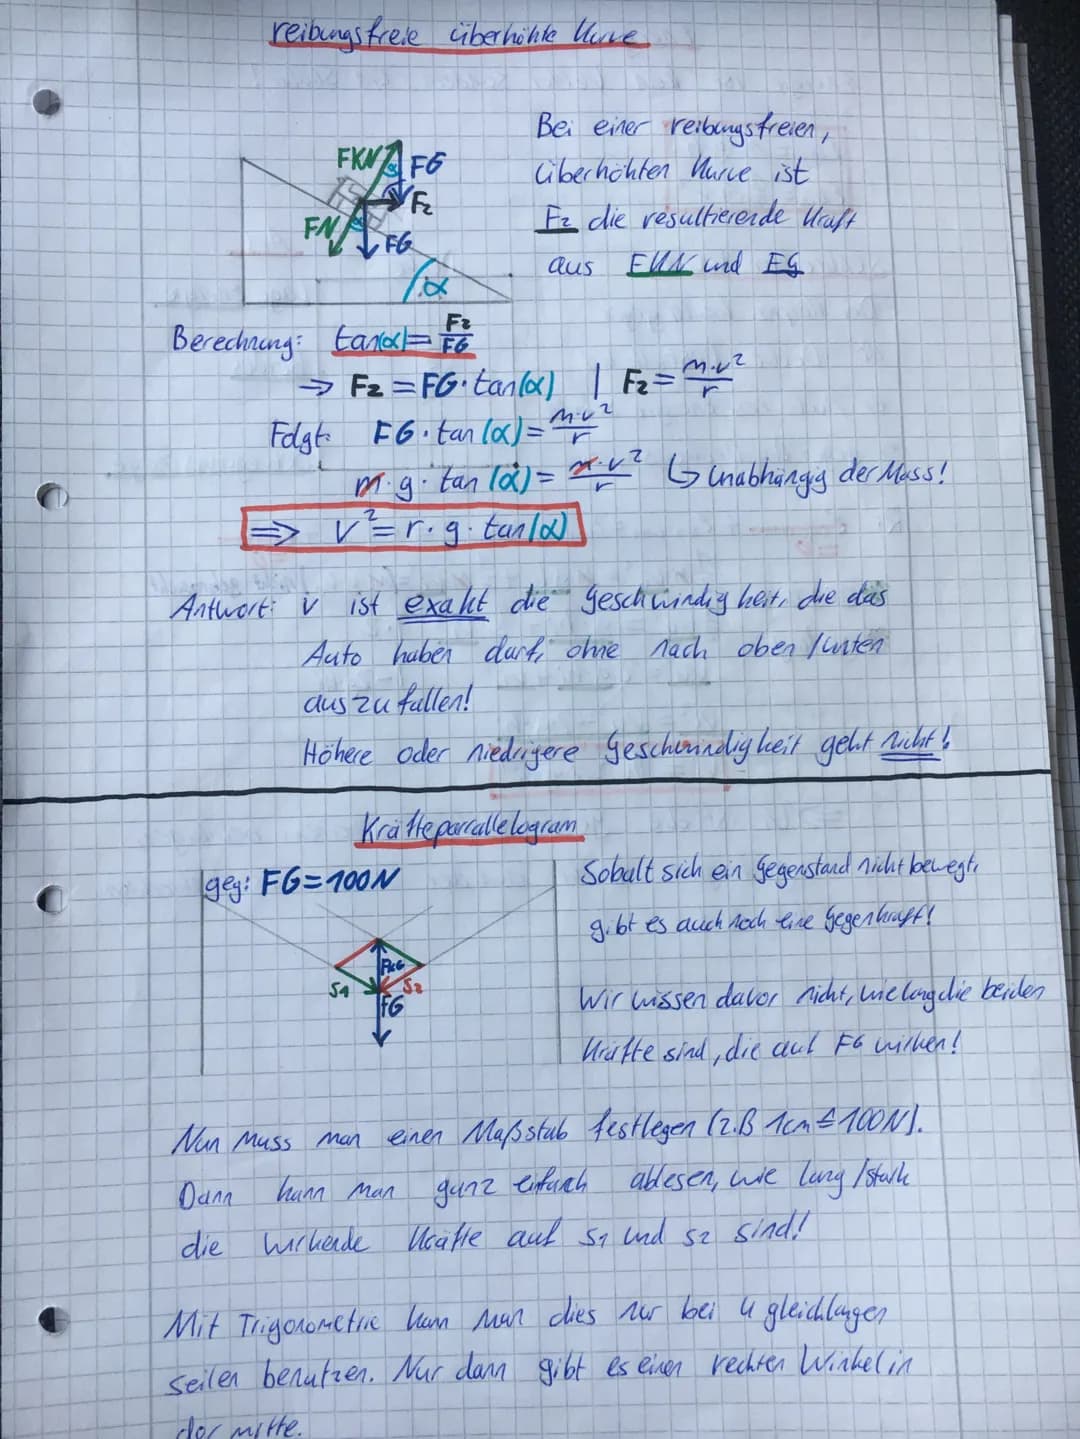 reibungsfreie überhöhte Kurve
Bei einer reibungsfreien,
überhöhten Kurve ist
Fz die resultierende Kraft
aus FKN und FG
FKN α FG
Fz
FN α FG
α
Berechnung: tan(α) = Fz/FG
=> Fz = FG · tan(α) | Fz = m·v²/r
Folgt: FG · tan(α) = m·v²/r
m · g · tan(α) = m·v²/r ↳ Unabhängig der Mass!
=> v² = r · g · tan(α)
Antwort: v ist exakt die Geschwindigkeit, die das
Auto haben darf, ohne nach oben / unten
auszufallen!
Höhere oder niedrigere Geschwindigkeit geht nicht!
Kräfteparallelogram
geg: FG = 100N
FKG
S1 S2
FG
Sobalt sich ein Gegenstand nicht bewegt,
gibt es auch noch eine Gegenkraft!
Wir wissen davor nicht, wie lang die beiden
Kräfte sind, die auf FG wirken!
Nun muss man einen Maßstab festlegen (z.B 1cm ≙ 100N).
Dann kann man ganz einfach ablesen, wie lang / stark
die wirkende Kräfte auf S1 und S2 sind!
Mit Trigonometrie kann man dies nur bei 4 gleichlangen
seilen benutzen. Nur dann gibt es einen rechten Winkel in
der mitte.